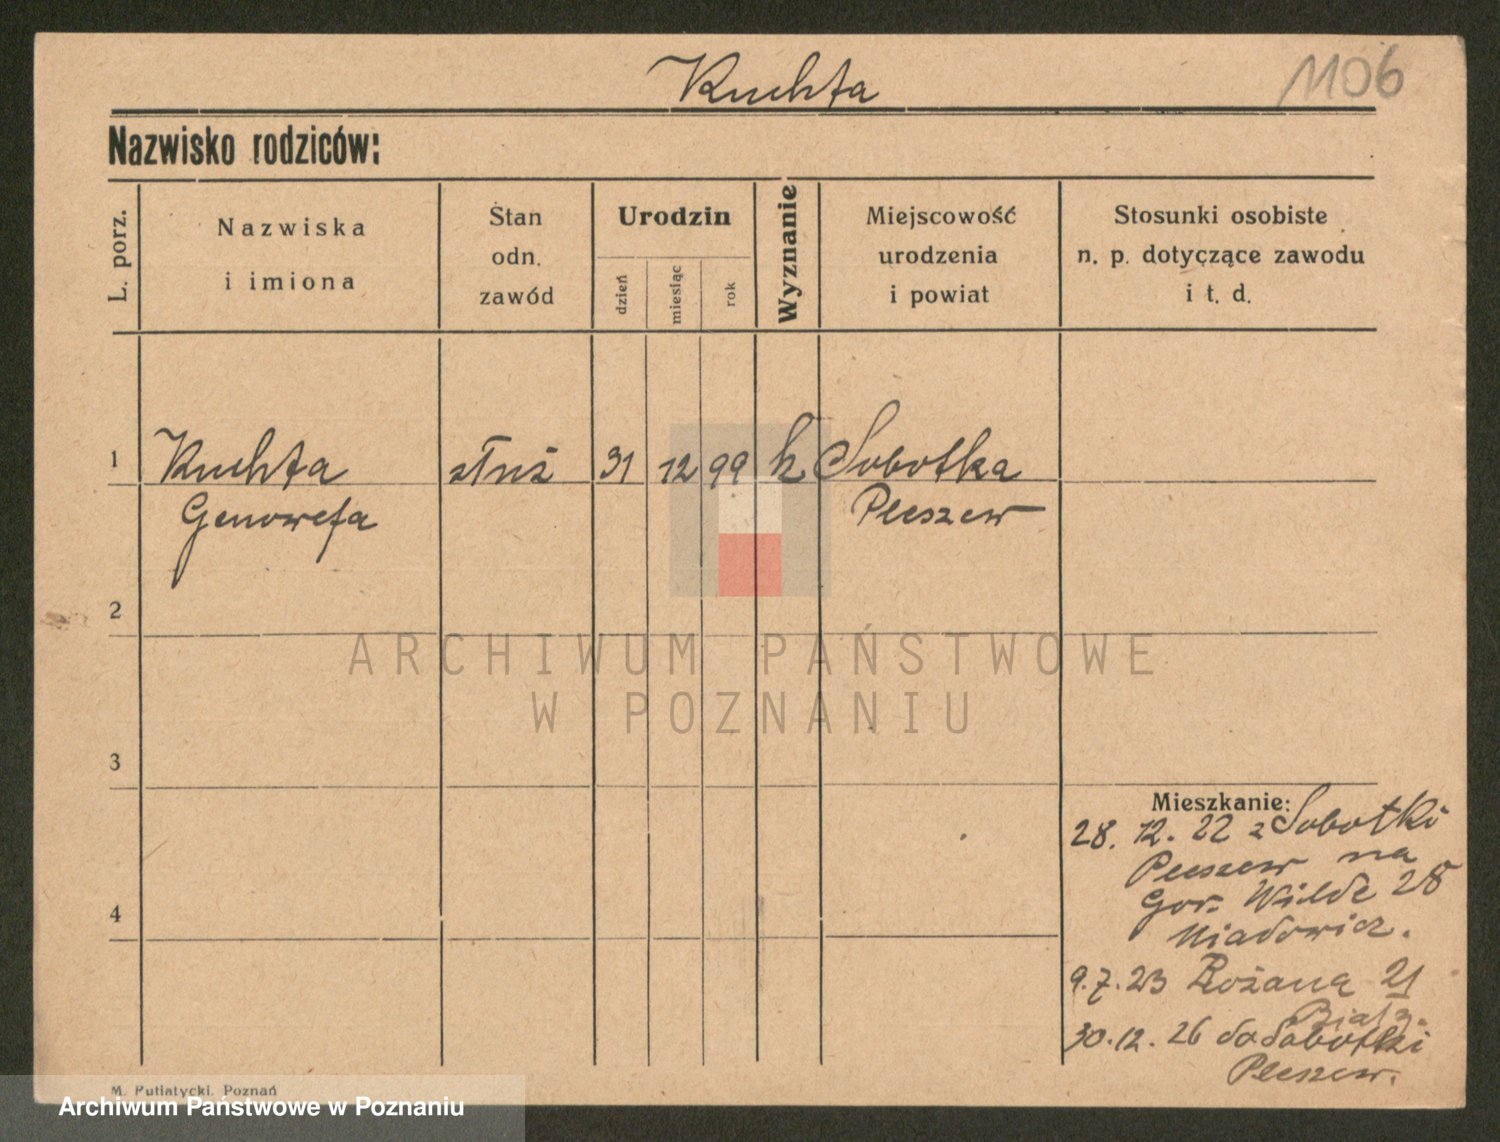 Kuchta
1106
Nazwisko rodziców:
L. porz.
Nazwiska
i imiona
Stan
odn.
zawód
Urodzin
dzień
miesiąc
rok
Wyznanie
Miejscowość
urodzenia
i powiat
Stosunki osobiste
n. p. dotyczące zawodu
i t. d.
1 Kuchta służ 31 12 99 k Sobotka
Genowefa Pleszew
2
3
4
ARCHIWUM PAŃSTWOWE
W POZNANIU
Mieszkanie:
28. 12. 22 z Sobotki
Pleszew na
Gór. Wilde 28
9.7.23 Różana 21
30.12.26 do Sobotki
Pleszew.
M. Putiatycki, Poznań
Archiwum Państwowe w Poznaniu